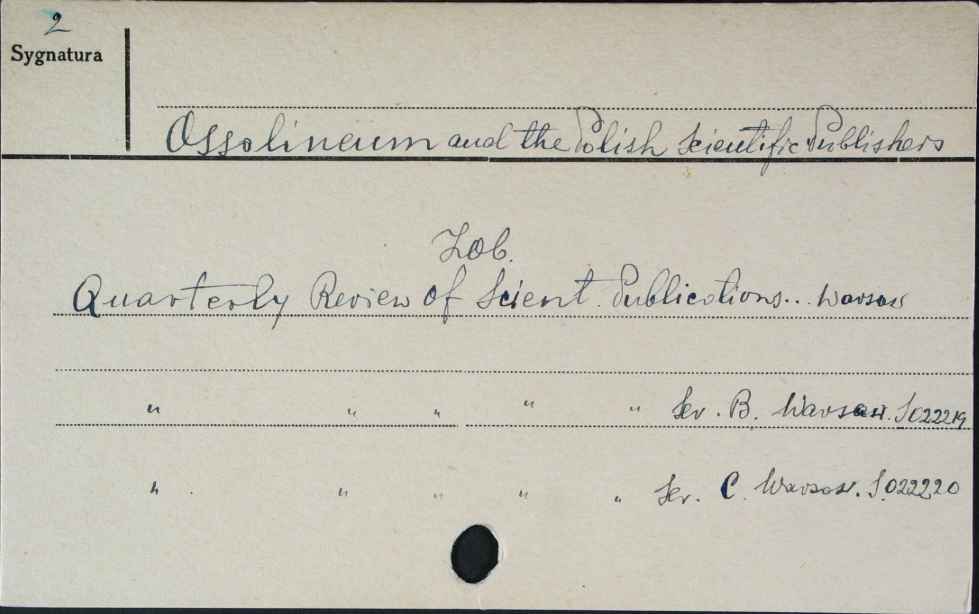 2
Sygnatura
Ossolineum and the Polish Scientific Publishers
Zob.
Quarterly Review of Scient. Publications.. Warsaw
" " " " " Ser. B. Warsaw. S022219
" " " " " Ser. C. Warsaw. S.022220